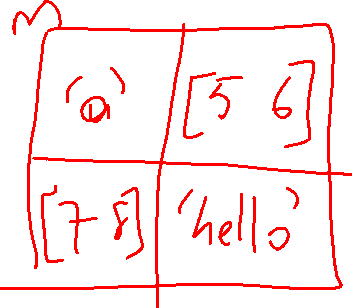 m
'a' [5 6]
[7 8] 'hello'